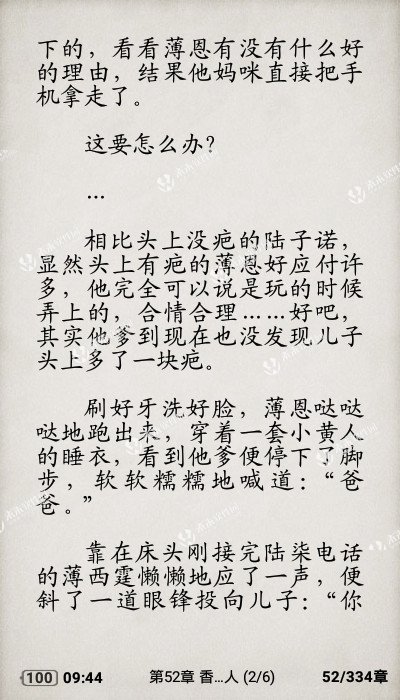 下的，看看薄恩有没有什么好
的理由，结果他妈咪直接把手
机拿走了。
这要怎么办？
…
相比头上没疤的陆子诺，
显然头上有疤的薄恩好应付许
多，他完全可以说是玩的时候
弄上的，合情合理……好吧，
其实他爹到现在也没发现儿子
头上多了一块疤。
刷好牙洗好脸，薄恩哒哒
哒地跑出来，穿着一套小黄人
的睡衣，看到他爹便停下了脚
步，软软糯糯地喊道：“爸
爸。”
靠在床头刚接完陆柒电话
的薄西霆懒懒地应了一声，便
斜了一道眼锋投向儿子：“你
100 09:44 第52章 香...人 (2/6) 52/334章